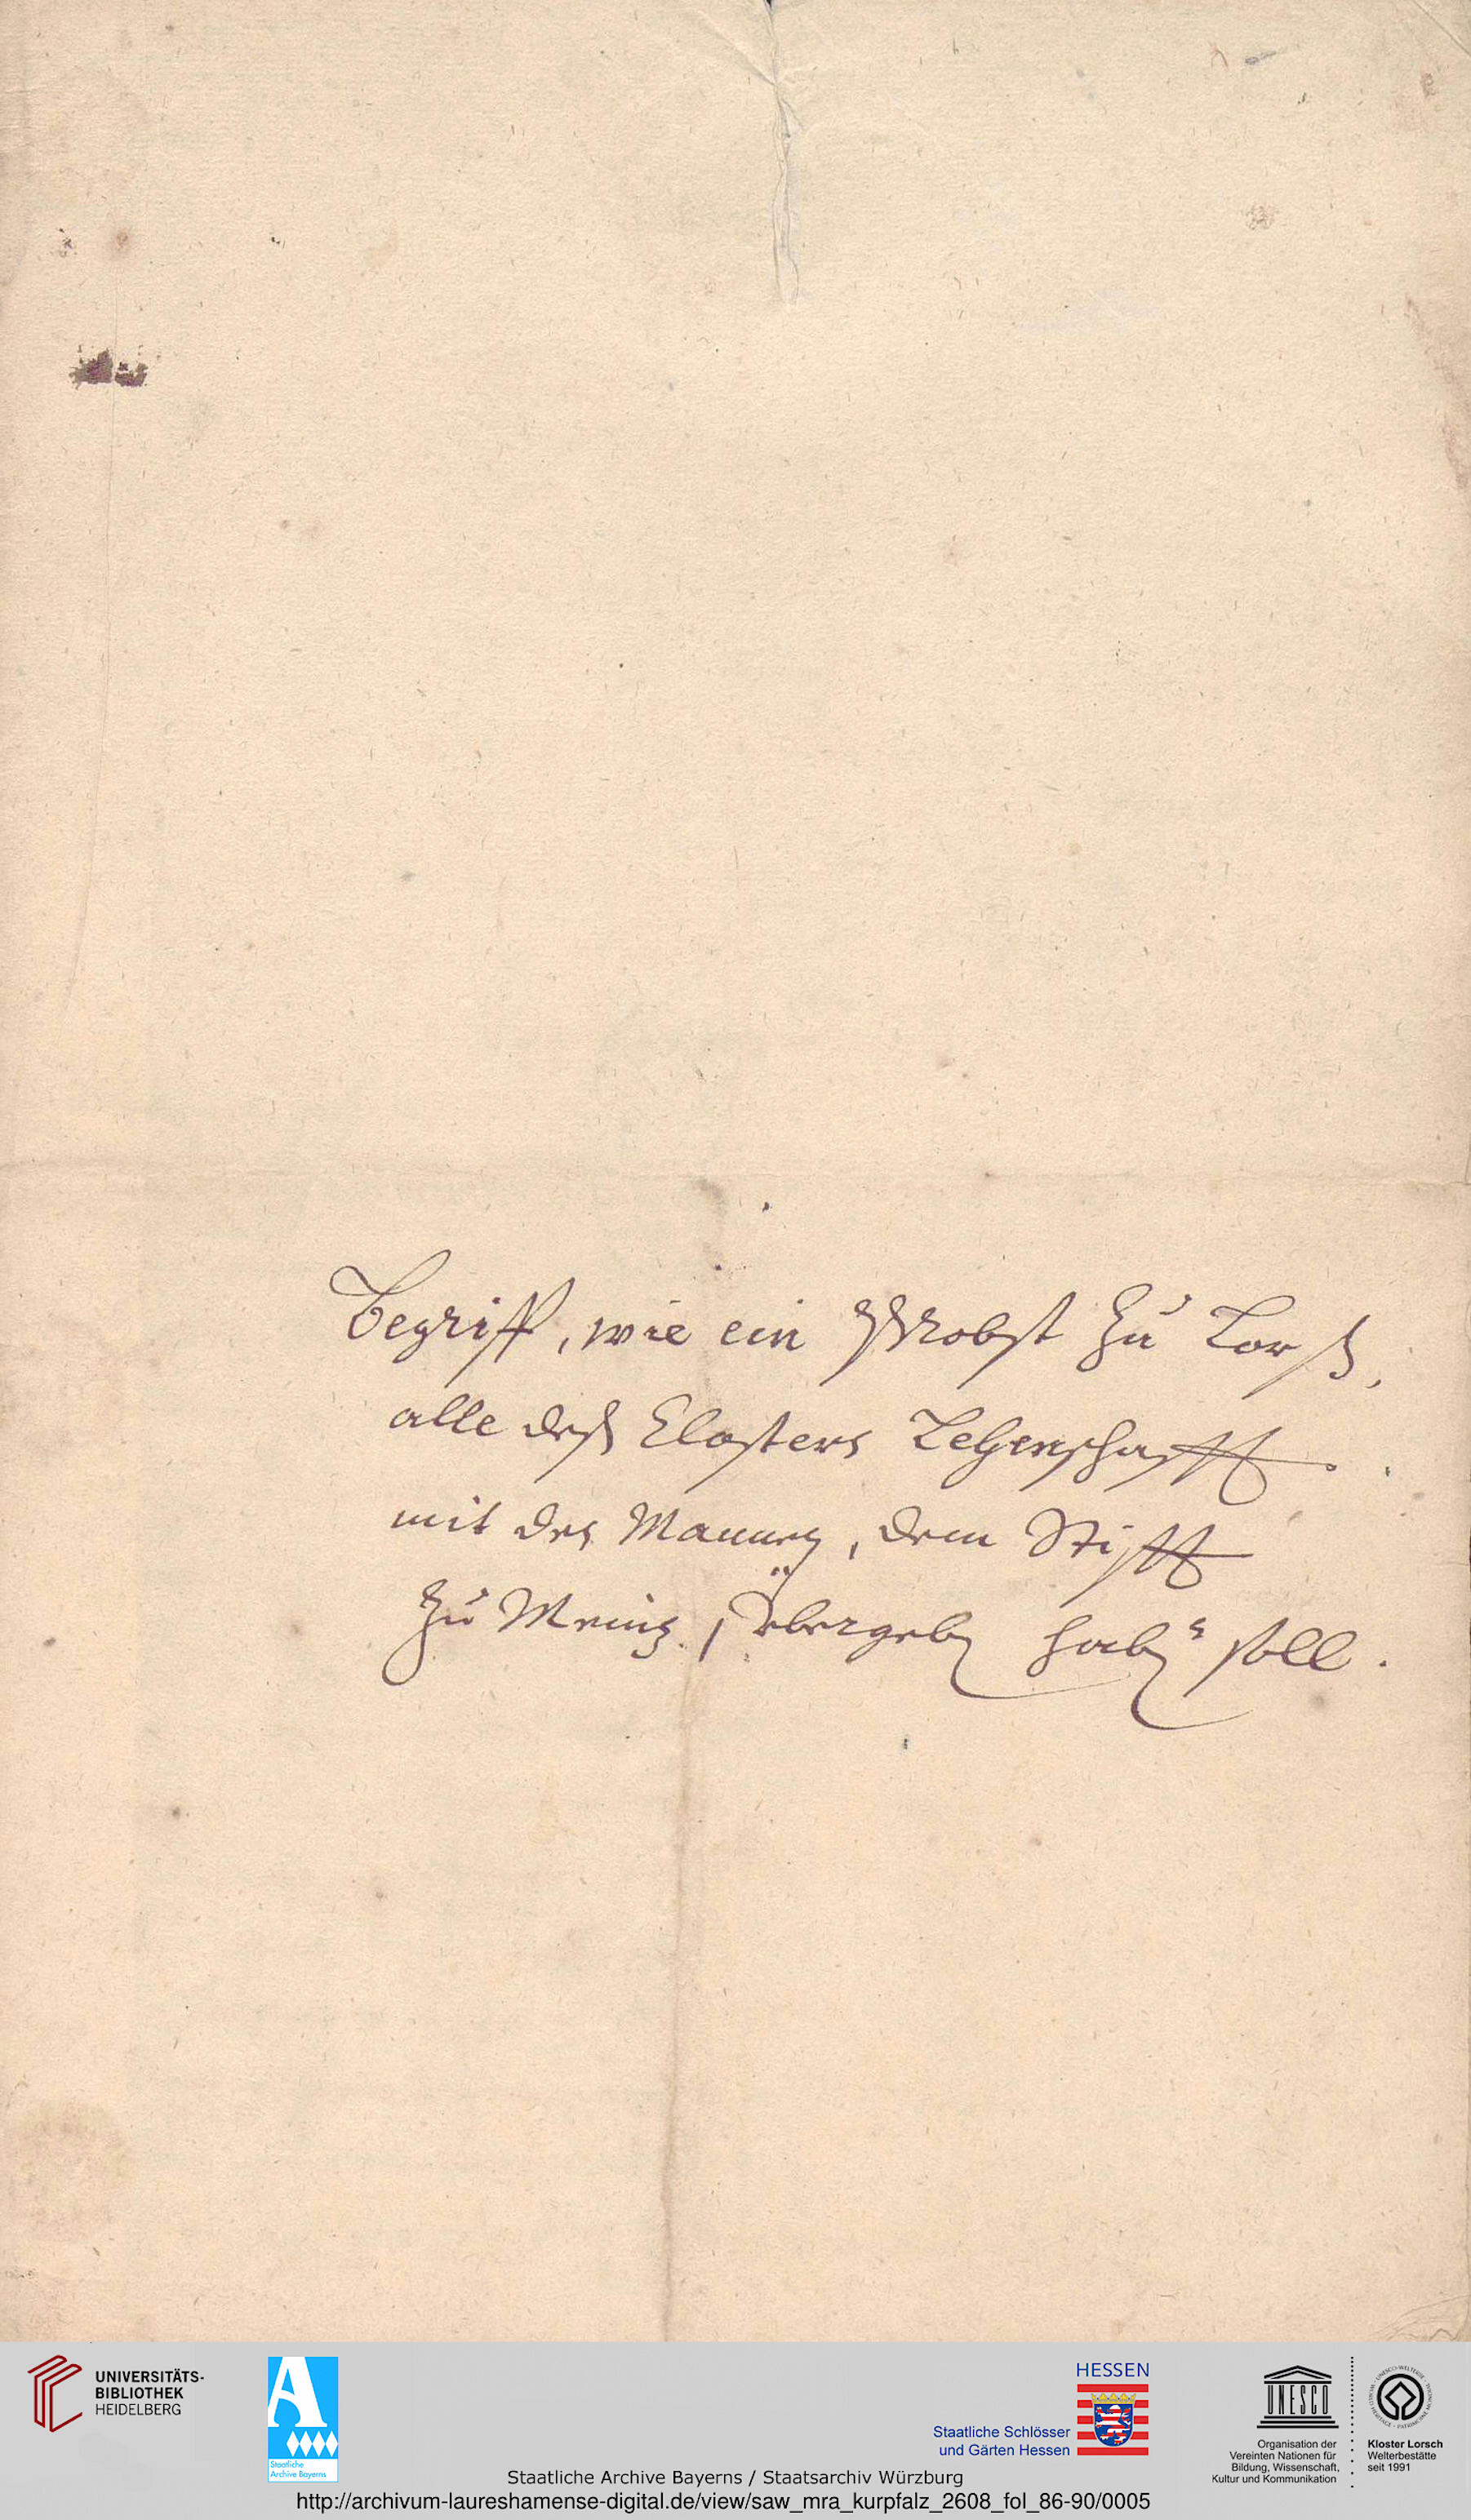 Begriff, wie ein Probst zu Lorß,
alle deß Closters Lehenschafft
mit der Mannen, dem Stifft
zu Meintz, übergeben haben soll.
UNIVERSITÄTS-
BIBLIOTHEK
HEIDELBERG
A
Staatliche
Archive Bayerns
HESSEN
Staatliche Schlösser
und Gärten Hessen
UNESCO
Organisation der
Vereinten Nationen für
Bildung, Wissenschaft,
Kultur und Kommunikation
Kloster Lorsch
Welterbestätte
seit 1991
Staatliche Archive Bayerns / Staatsarchiv Würzburg
http://archivum-laureshamense-digital.de/view/saw_mra_kurpfalz_2608_fol_86-90/0005